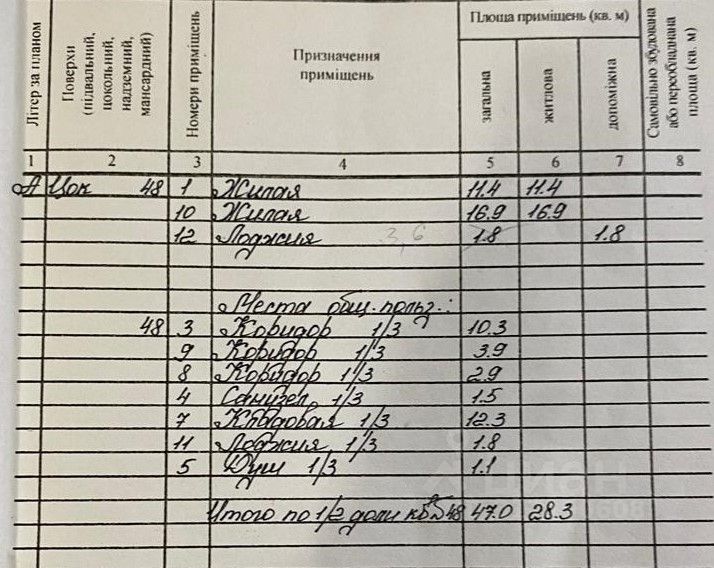 Літер за планом
Поверхи (підвальний, цокольний, надземний, мансардний)
Номери приміщень
Призначення приміщень
Площа приміщень (кв. м)
загальна
житлова
допоміжна
Самовільно збудована або переобладнана площа (кв. м)
1 2 3 4 5 6 7 8
А Цок 48 1 Жилая 11.4 11.4
10 Жилая 16.9 16.9
12 Лоджия 3,6 1.8 1.8
Места общ. польз.:
48 3 Коридор 1/3 10.3
9 Коридор 1/3 3.9
8 Коридор 1/3 2.9
4 Санузел 1/3 1.5
7 Кладовая 1/3 12.3
11 Лоджия 1/3 1.8
5 Душ 1/3 1.1
Итого по 1/2 доли кв №48 47.0 28.3